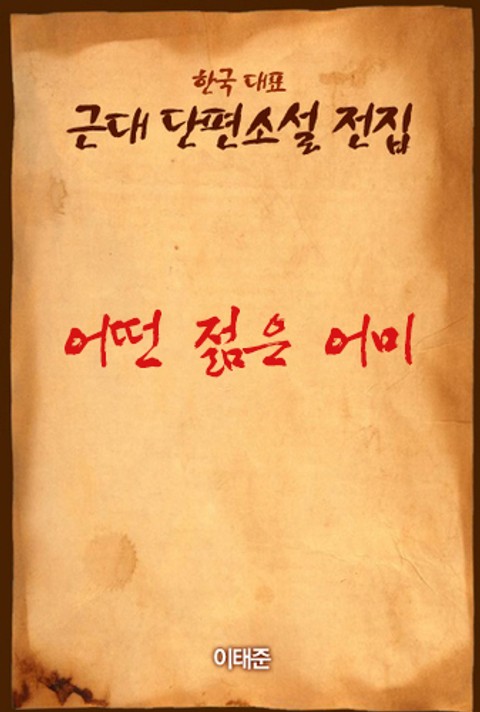 한국 대표
근대 단편소설 전집
어떤 젊은 어미
이태준